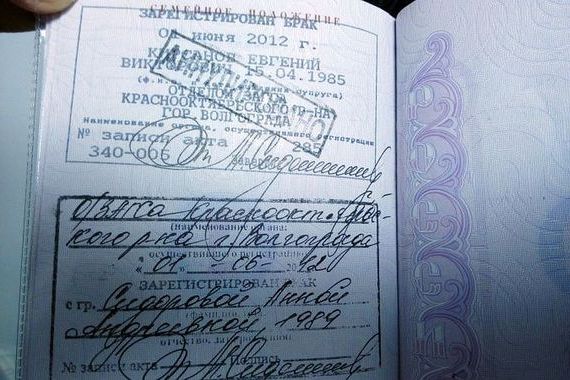 СЕМЕЙНОЕ ПОЛОЖЕНИЕ
ЗАРЕГИСТРИРОВАН БРАК
июня 2012 г.
ЕВГЕНИЙ
15.04.1985
ОТДЕЛОМ ЗАГСА
КРАСНООКТЯБРЬСКОГО Р-НА
ГОР. ВОЛГОГРАДА
Наименование органа, осуществившего регистрацию
№ записи акта 285
340-006
О/ЗАГСа Красноокт.
кого р-на г. Волгограда
(наименование органа,
осуществившего регистрацию)
"01" 06
ЗАРЕГИСТРИРОВАН БРАК
с гр. Сидоровой Анной
Андреевной, 1989
отчество, дата рождения)
№ записи акта Подпись